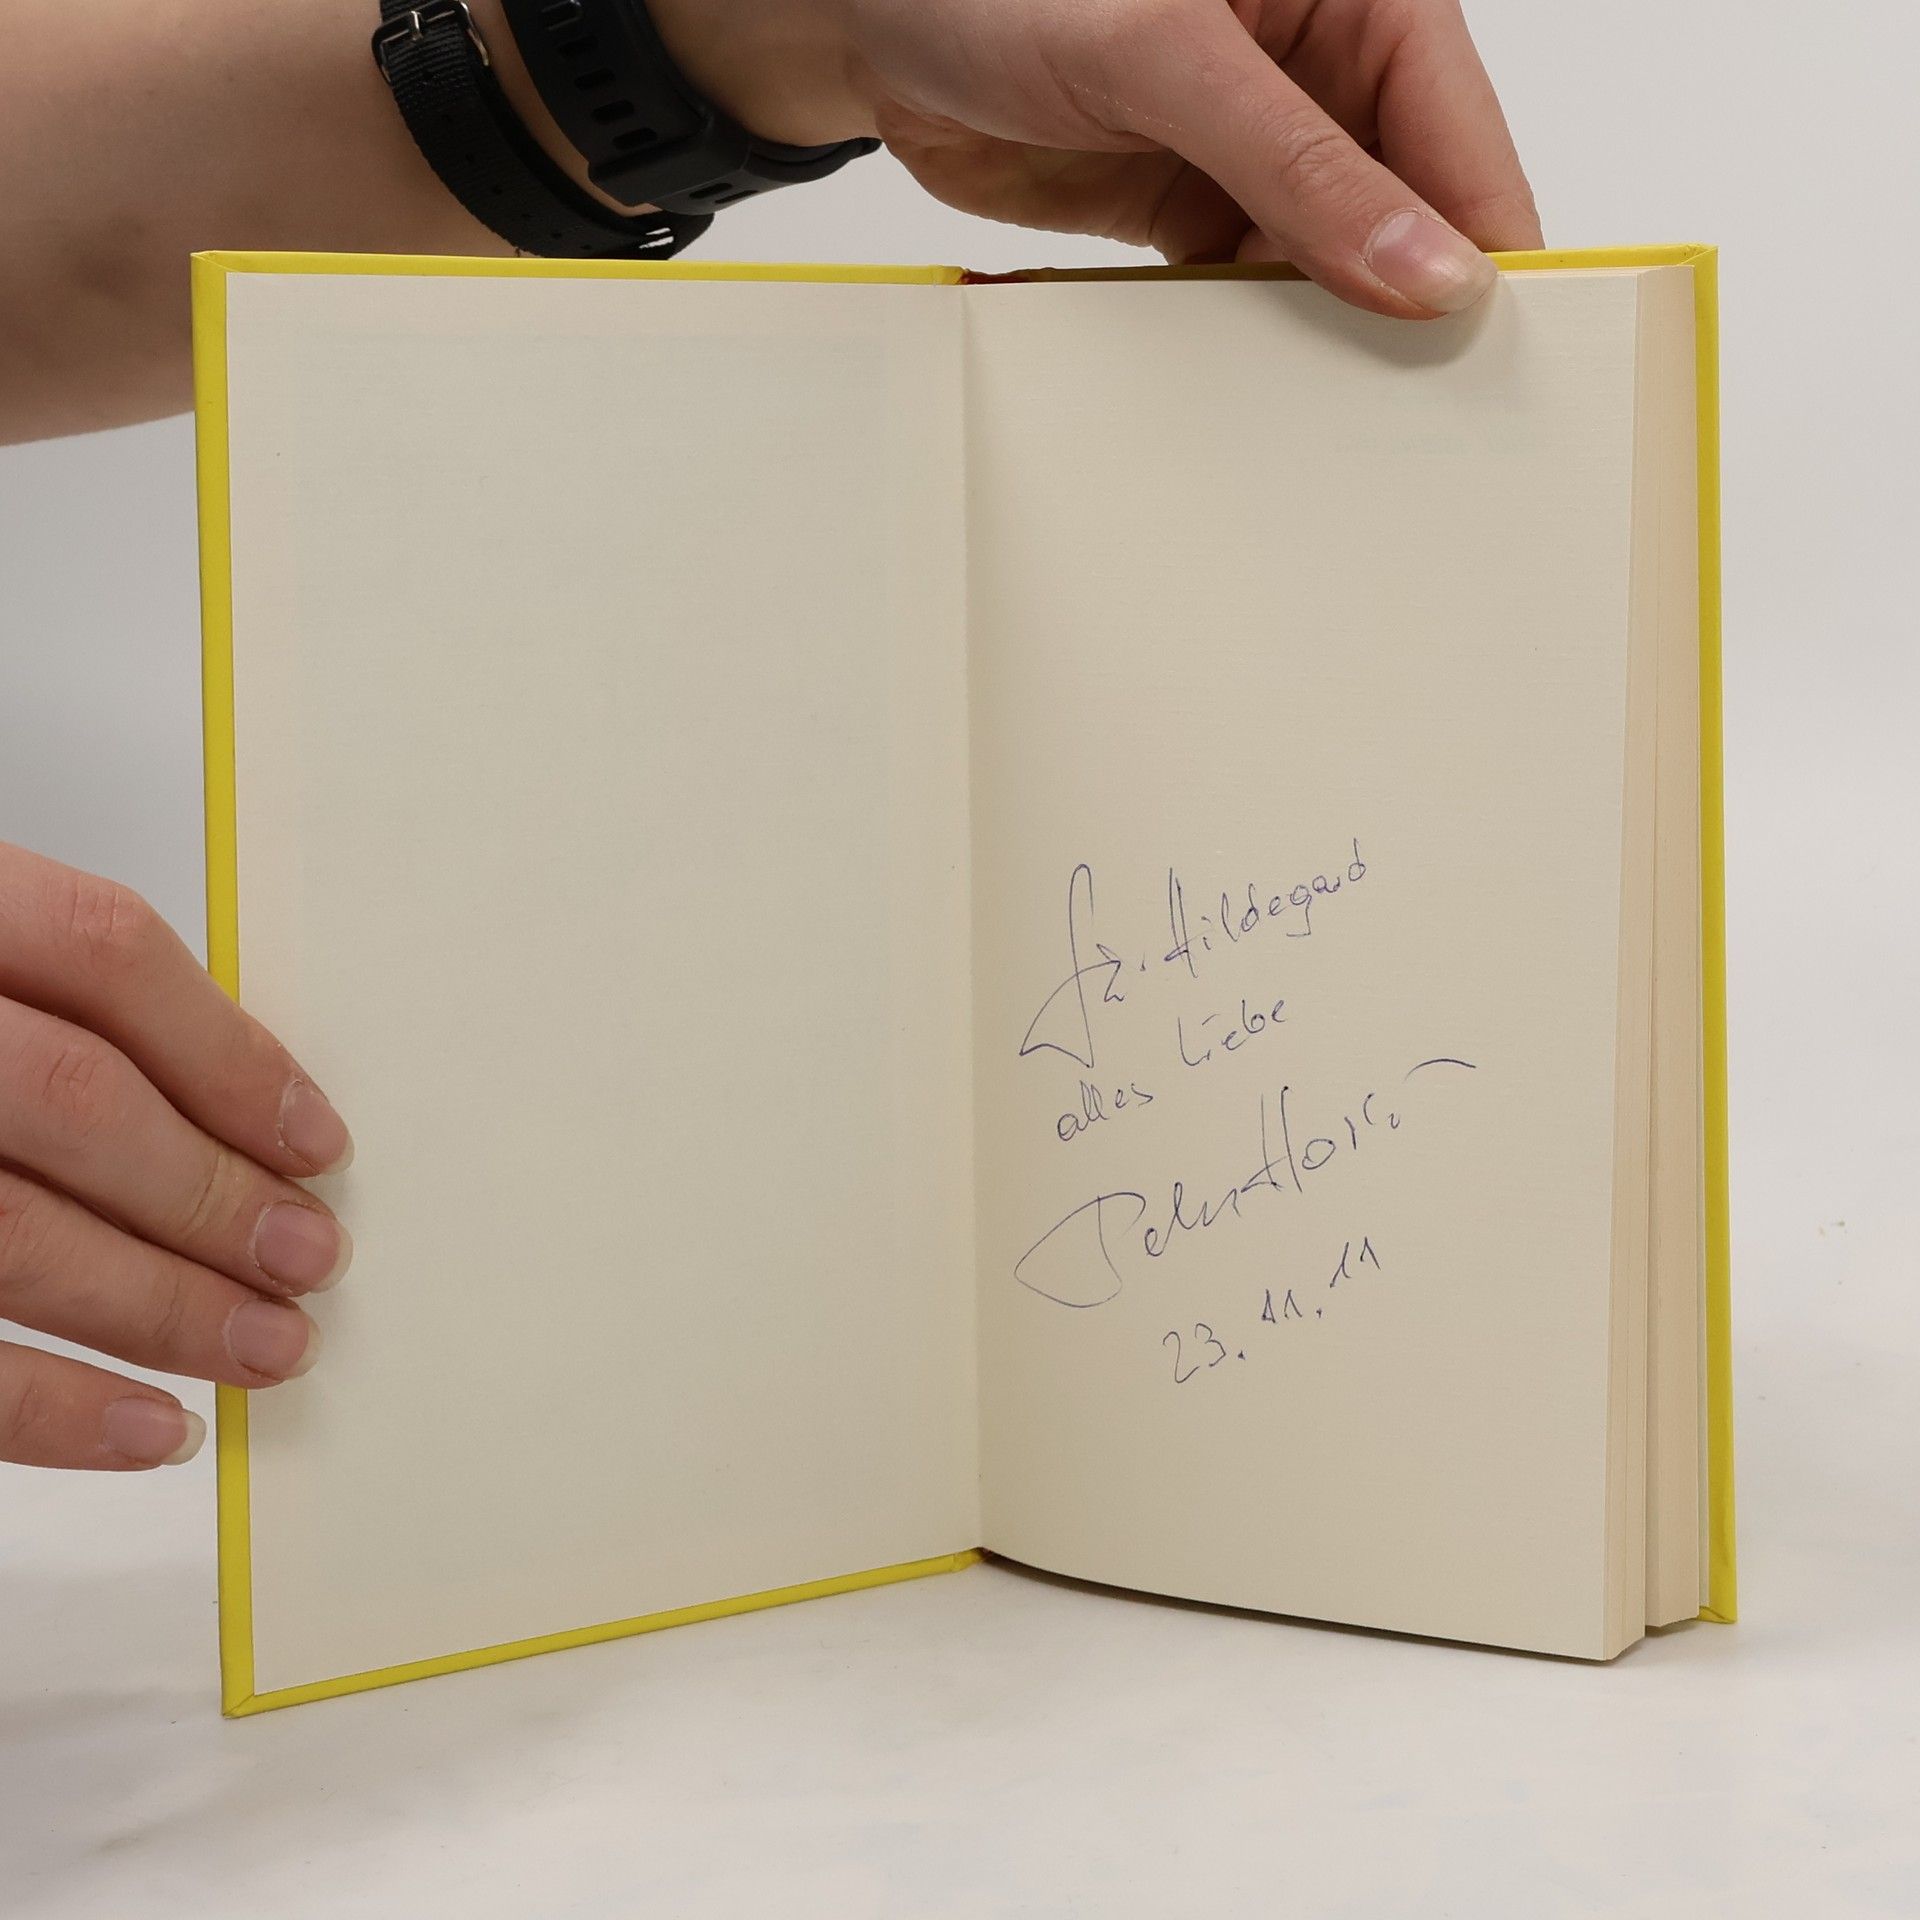 für Hildegard
alles Liebe
Peter
23.11.11